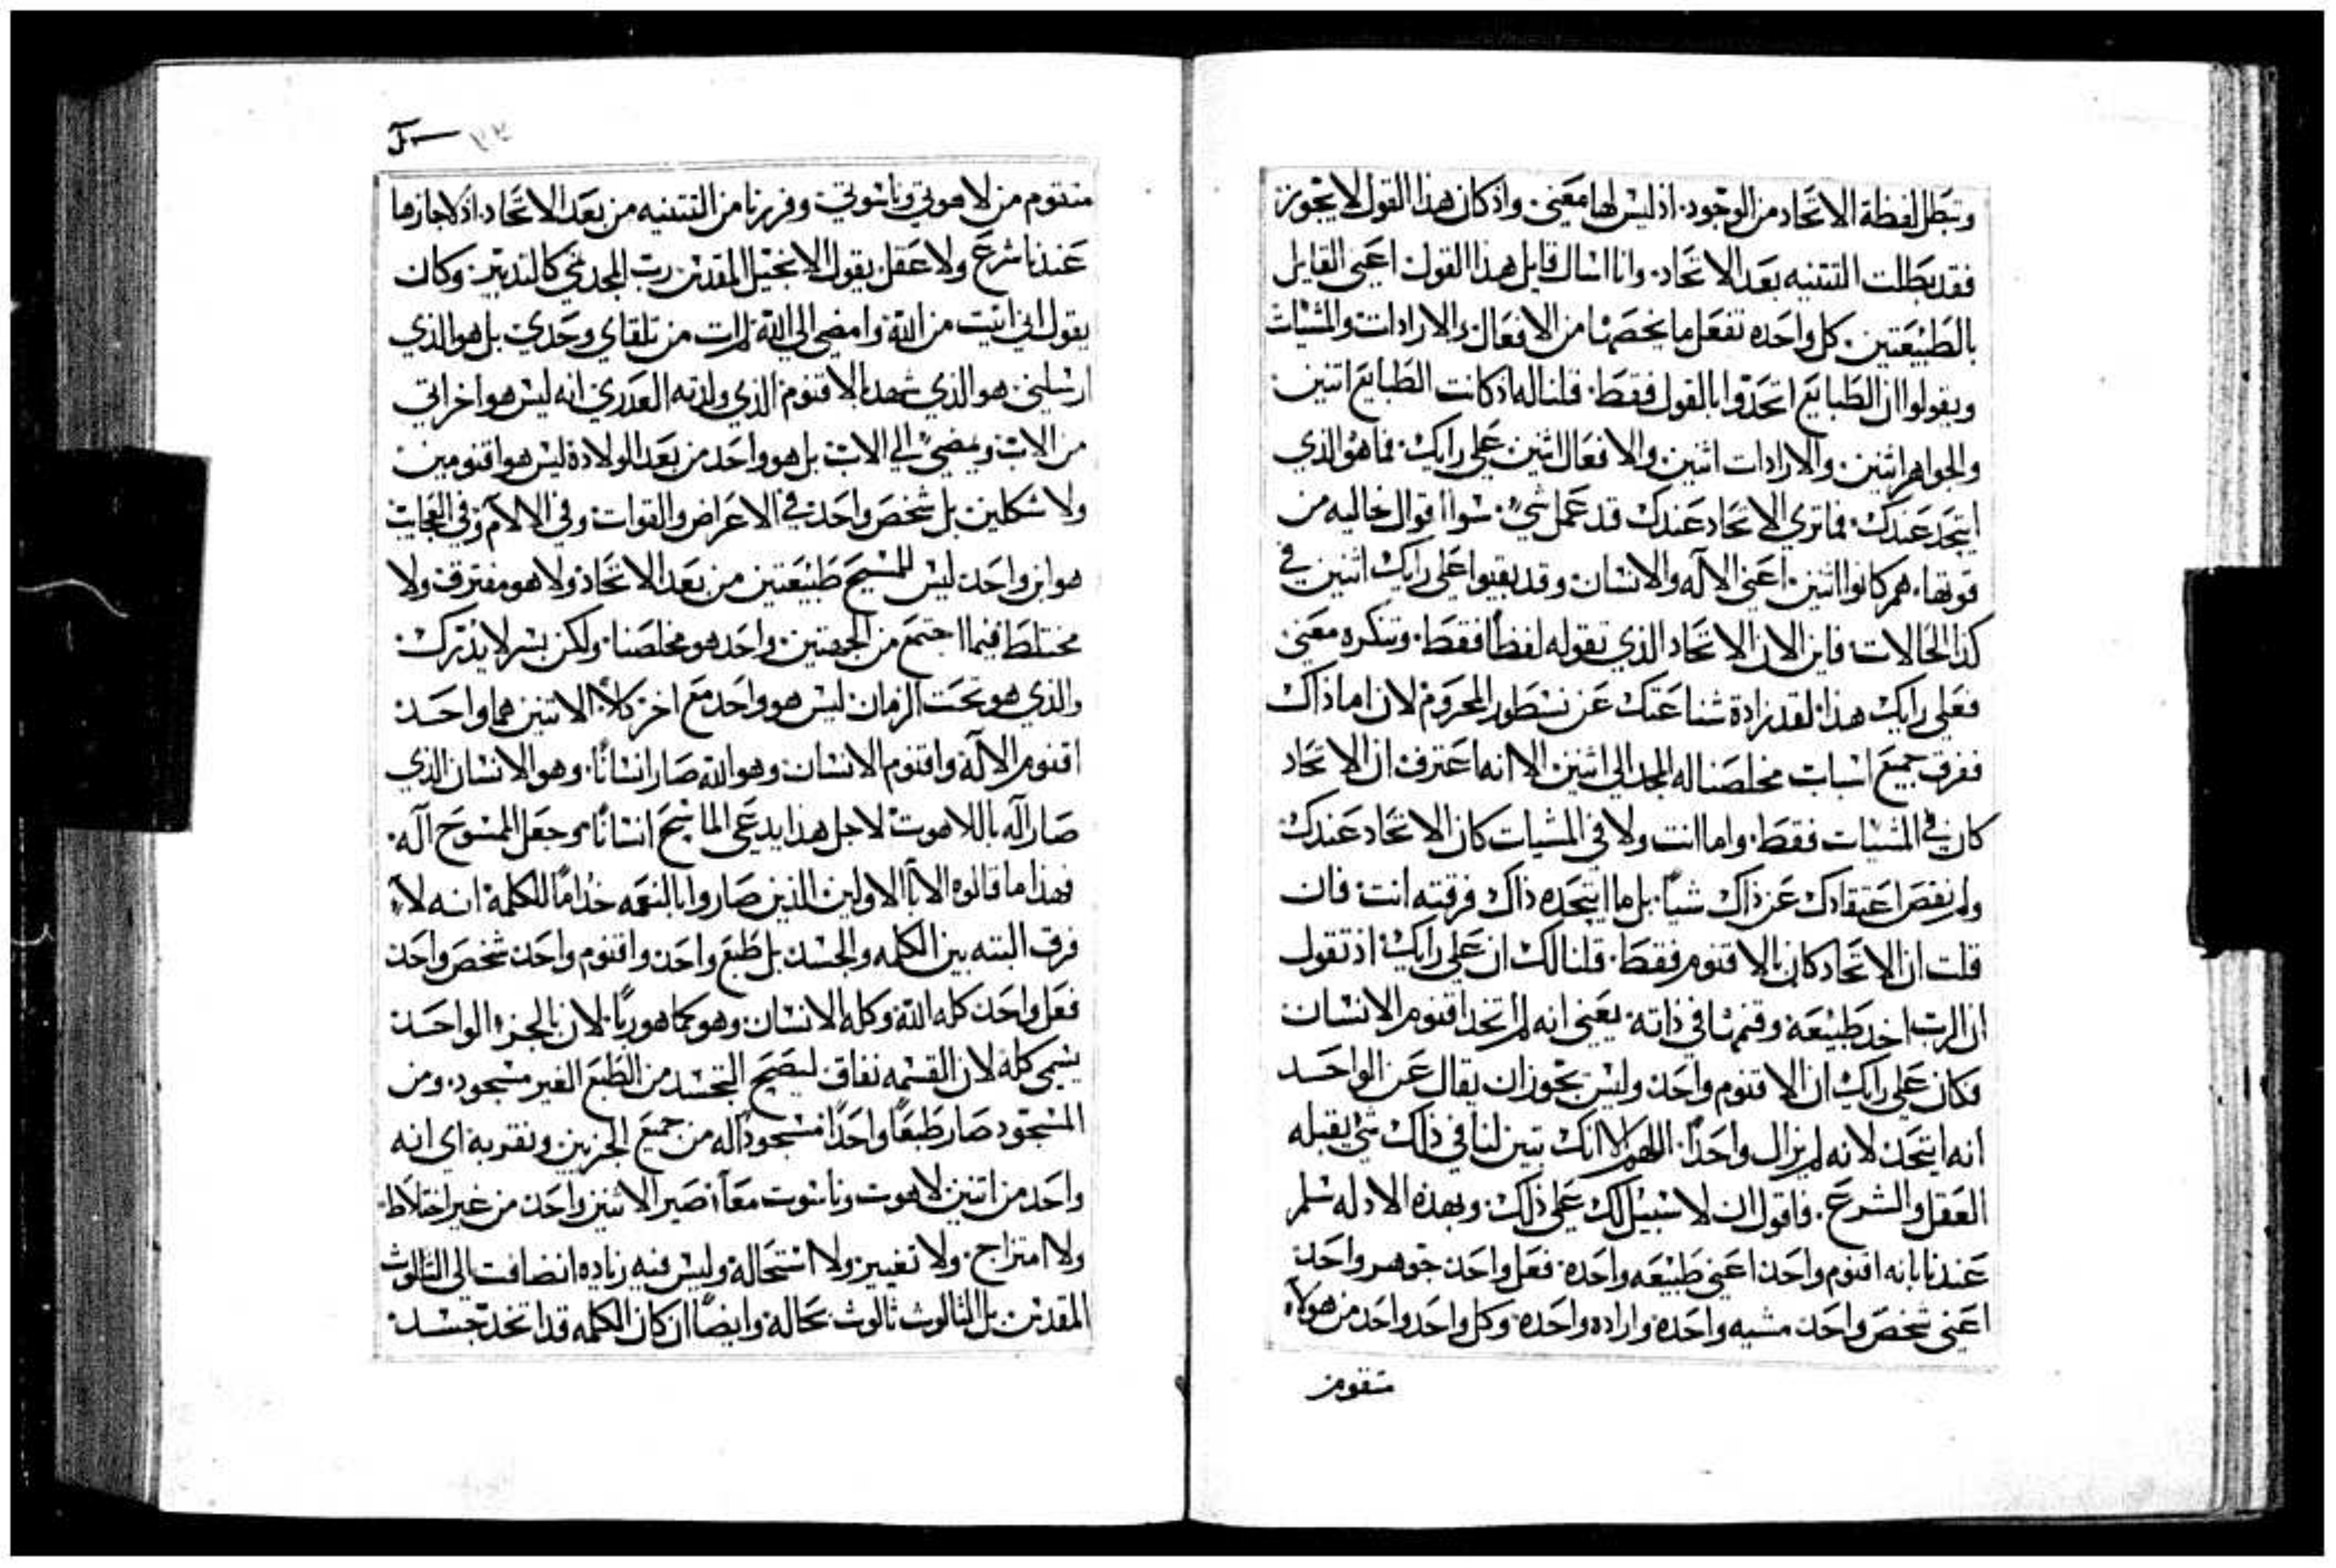 وتبطل لفظة الاتحاد من الوجود. اذ ليس لها معني. واذ كان هذا القول لا يجوز
فقد بطلت التتنيه بعد الاتحاد. وانا اسال قايل هذا القول اعني القايل
بالطبيعتين. كل واحده تفعل ما يخصها من الافعال والارادات والمشيات
ويقولوا ان الطبايع اتحدوا بالقول فقط. قلنا له اذ كانت الطبايع اتنين
والجواهر اثنين. والارادات اثنين والافعال اثنين علي رايك. فما هو الذي
ايتحد عندك. فما تري الاتحاد عندك قد عمل شي. سوا اقوال خاليه من
قوتها. هم كانوا اثنين. اعني الاله والانسان وقد بقيوا علي رايك اثنين في
كذا الحالات فاين الان الاتحاد الذي تقوله لفظاً فقط. وتنكره معني
فعلي رايك هذا لقد زادة شناعتك عن نسطور المحروم لان اما ذاك
ففرق جميع اسبات مخلصنا له المجد الي اثنين. الا انه اعترف ان الاتحاد
كان في المشيات فقط. واما انت ولا في المشيات كان الاتحاد عندك
ولم نقص اعتقادك عن ذاك شياً. بل ما ايتحده ذاك فرقته انت. فان
قلت ان الاتحاد كان بالاقنوم فقط. قلنا لك ان علي رايك اذ تقول
ان الرب اخد طبيعة وقنمها في ذاته. يعني انه لم اتحد اقنوم الانسان
فكان علي رايك ان الاقنوم واحد. وليس يجوز ان يقال عن الواحد
انه ايتحد. لانه لم يزال واحداً. اللهم الا انك تبين لنا في ذاك شي يقبله
العقل والشرع. فاقول ان لا سبيل لك علي ذلك. وبهذه الادله سلم
عندنا بانه اقنوم واحد. اعني طبيعه واحده. فعل واحد. جوهر واحد
اعني شخص واحد. مشيه واحده. واراده واحده. وكل واحد واحد من هولاء
متقوم
متقوم من لاهوتي وناسوتي. وفررنا من التتنيه من بعد الاتحاد. اذ لا جازها
عندنا شرع ولا عقل. يقول الانجيل المقدس. رب المجد نحي كالتدبير. وكان
يقول اني اتيت من الله وامضي الي الله. لم ات من تلقاي وحدي بل هو الذي
ارسلني. هو الذي شهد بالاقنوم الذي ولدته العدري انه ليس هو اخر اتي
من الاب. ويمضي الي الاب. بل هو واحد من بعد الولادة ليس هو اقنومين
ولا شكلين. بل شخص واحد. في الاعراض والقوات وفي الالام وفي العجايب
هو ابن واحد. ليس للمسيح طبيعتين من بعد الاتحاد. ولا هو مفترق ولا
مختلط فيما اجتمع من الجهتين. واحد هو مخلصنا. ولكن بسر لا يدرك.
والذي هو تحت الزمان ليس هو واحد مع اخر كلا. الاتنين هما واحد
اقنوم الاله واقنوم الانسان. وهو الله صار انساناً. وهو الانسان الذي
صار اله باللاهوت لاجل هذا يدعي الماسح انساناً. وجعل المسوح اله.
فهذا ما قالوه الابا الاولين الذين صاروا بالنعمه خداماً للكلمة. انه لا
فرق البته بين الكلمه والجسد. بل طبع واحد. واقنوم واحد. شخص واحد
فعل واحد. كله الله وكله الانسان. وهو كما هو رباً. لان بالجزء الواحد
يسمي كله لان القسمه نفاق. ليصح التجسد من الطبع الغير مسجود. ومن
المسجود صار طبعاً واحداً مسجوداً له من جميع الجزيين. ونقر به اي انه
واحد من اتنين لاهوت وناسوت معاً. صير الاتنين واحد من غير اختلاط.
ولا امتزاج. ولا تغيير. ولا استحالة. وليس فيه زياده انضافت الي الثالوث
المقدس. بل الثالوث ثالوث بحاله. وايضاً ان كان الكلمه قد اتخد جسد.